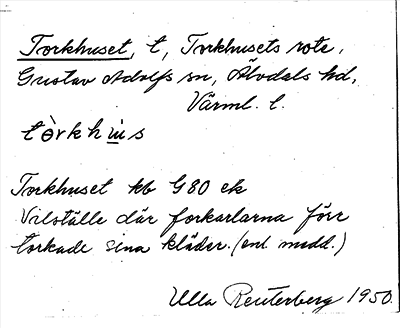 Torkhuset, t, Torkhusets rote,
Gustav Adolfs sn, Älvdals hd,
Värml. l.
tòrkhus
Torkhuset kb G80 ek
Viloställe där forkarlarna förr
torkade sina kläder. (enl. medd.)
Ulla Reuterberg 1950.